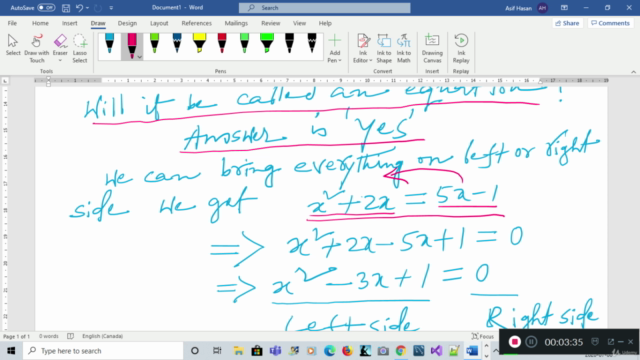 AutoSave Off Document1 - Word Search Asif Hasan AH
File Home Insert Draw Design Layout References Mailings Review View Help Share Comments
Select Draw with Touch Eraser Lasso Select Add Pen Ink Editor Ink to Shape Ink to Math Ink Replay
Tools Pens Convert Replay
Will it be called an equation?
Answer is 'Yes'
We can bring everything on left or right
side we get x² + 2x = 5x - 1
=> x² + 2x - 5x + 1 = 0
=> x² - 3x + 1 = 0
Left side Right side
Page 1 of 1 0 words English (Canada) Focus
00:03:35
Type here to search